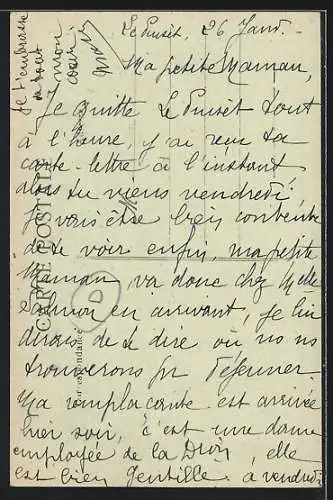 Le Puiset, 26 Janv.
Ma petite Maman,
Je quitte Le Puiset tout
à l'heure, j'ai reçu ta
carte-lettre à l'instant
alors tu viens vendredi,
je vais être bien contente
de te voir enfin, ma petite
Maman, va donc chez Melle
en arrivant, je lui
dirais de te dire où ns ns
trouverons pr déjeuner
Ma remplaçante est arrivée
hier soir, c'est une dame
employée de la Dion, elle
est bien gentille. à vendredi
je t'embrasse
de tout
mon
cœur
CARTE POSTALE
Correspondance